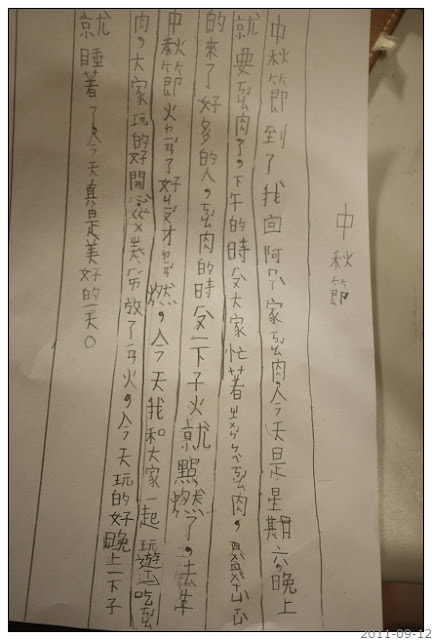 中秋節
中秋節到了我回阿公家ㄎㄠ肉,今天是星期六,晚上
就要ㄎㄠ肉了,下午的時分大家忙著ㄓㄨㄣㄅㄟㄎㄠ肉,
的來了好多的人,ㄎㄠ肉的時分一下子火就點燃了,去年
中秋節火了好才燃,今天我和大家一起玩遊吃ㄎㄠ
肉,大家玩的好開心放了ㄧㄢ火,今天玩的好晚上一下子
就睡著了,今天真是美好的一天。
2011-09-12